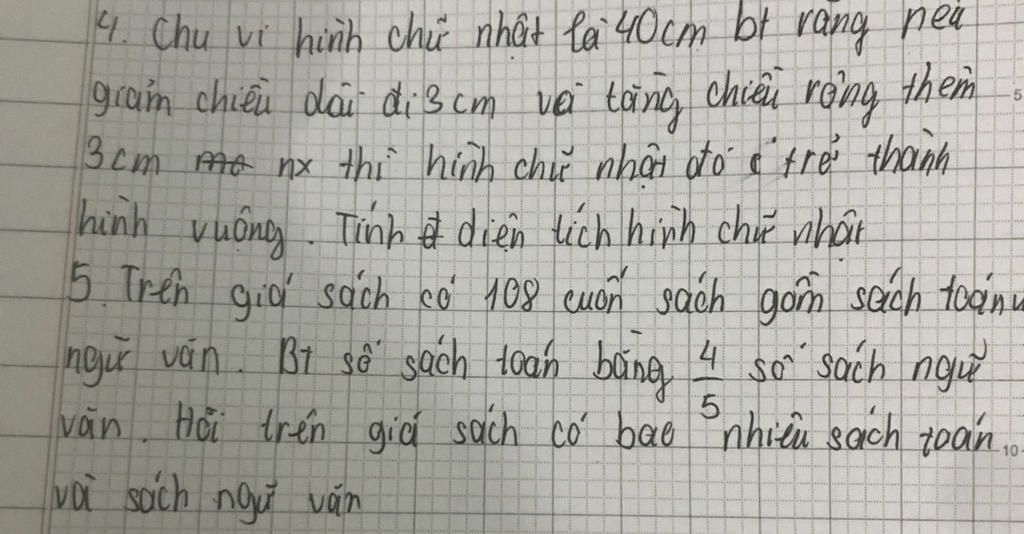 4. Chu vi hình chữ nhật là 40cm bt rằng nếu
giảm chiều dài đi 3cm và tăng chiều rộng thêm
3cm nx thì hình chữ nhật đó trở thành
hình vuông. Tính diện tích hình chữ nhật
5. Trên giá sách có 108 cuốn sách gồm sách toán
ngữ văn. Bt số sách toán bằng 4/5 số sách ngữ
văn. Hỏi trên giá sách có bao nhiêu sách toán
và sách ngữ văn